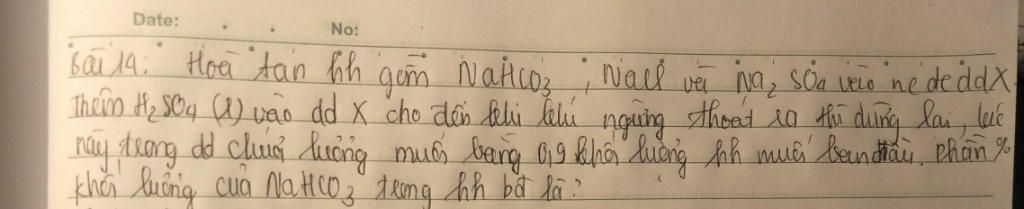 Date: No:
Bài 14: Hoà tan hh gồm NaHCO3, NaCl và Na2SO4 vào nc để ddX.
Thêm H2SO4 (l) vào dd X cho đến khi khí ngừng thoát ra thì dừng lại, lúc
này trong dd chứa lượng muối bằng 0,9 khối lượng hh muối ban đầu. Phần %
khối lượng của NaHCO3 trong hh bđ là?